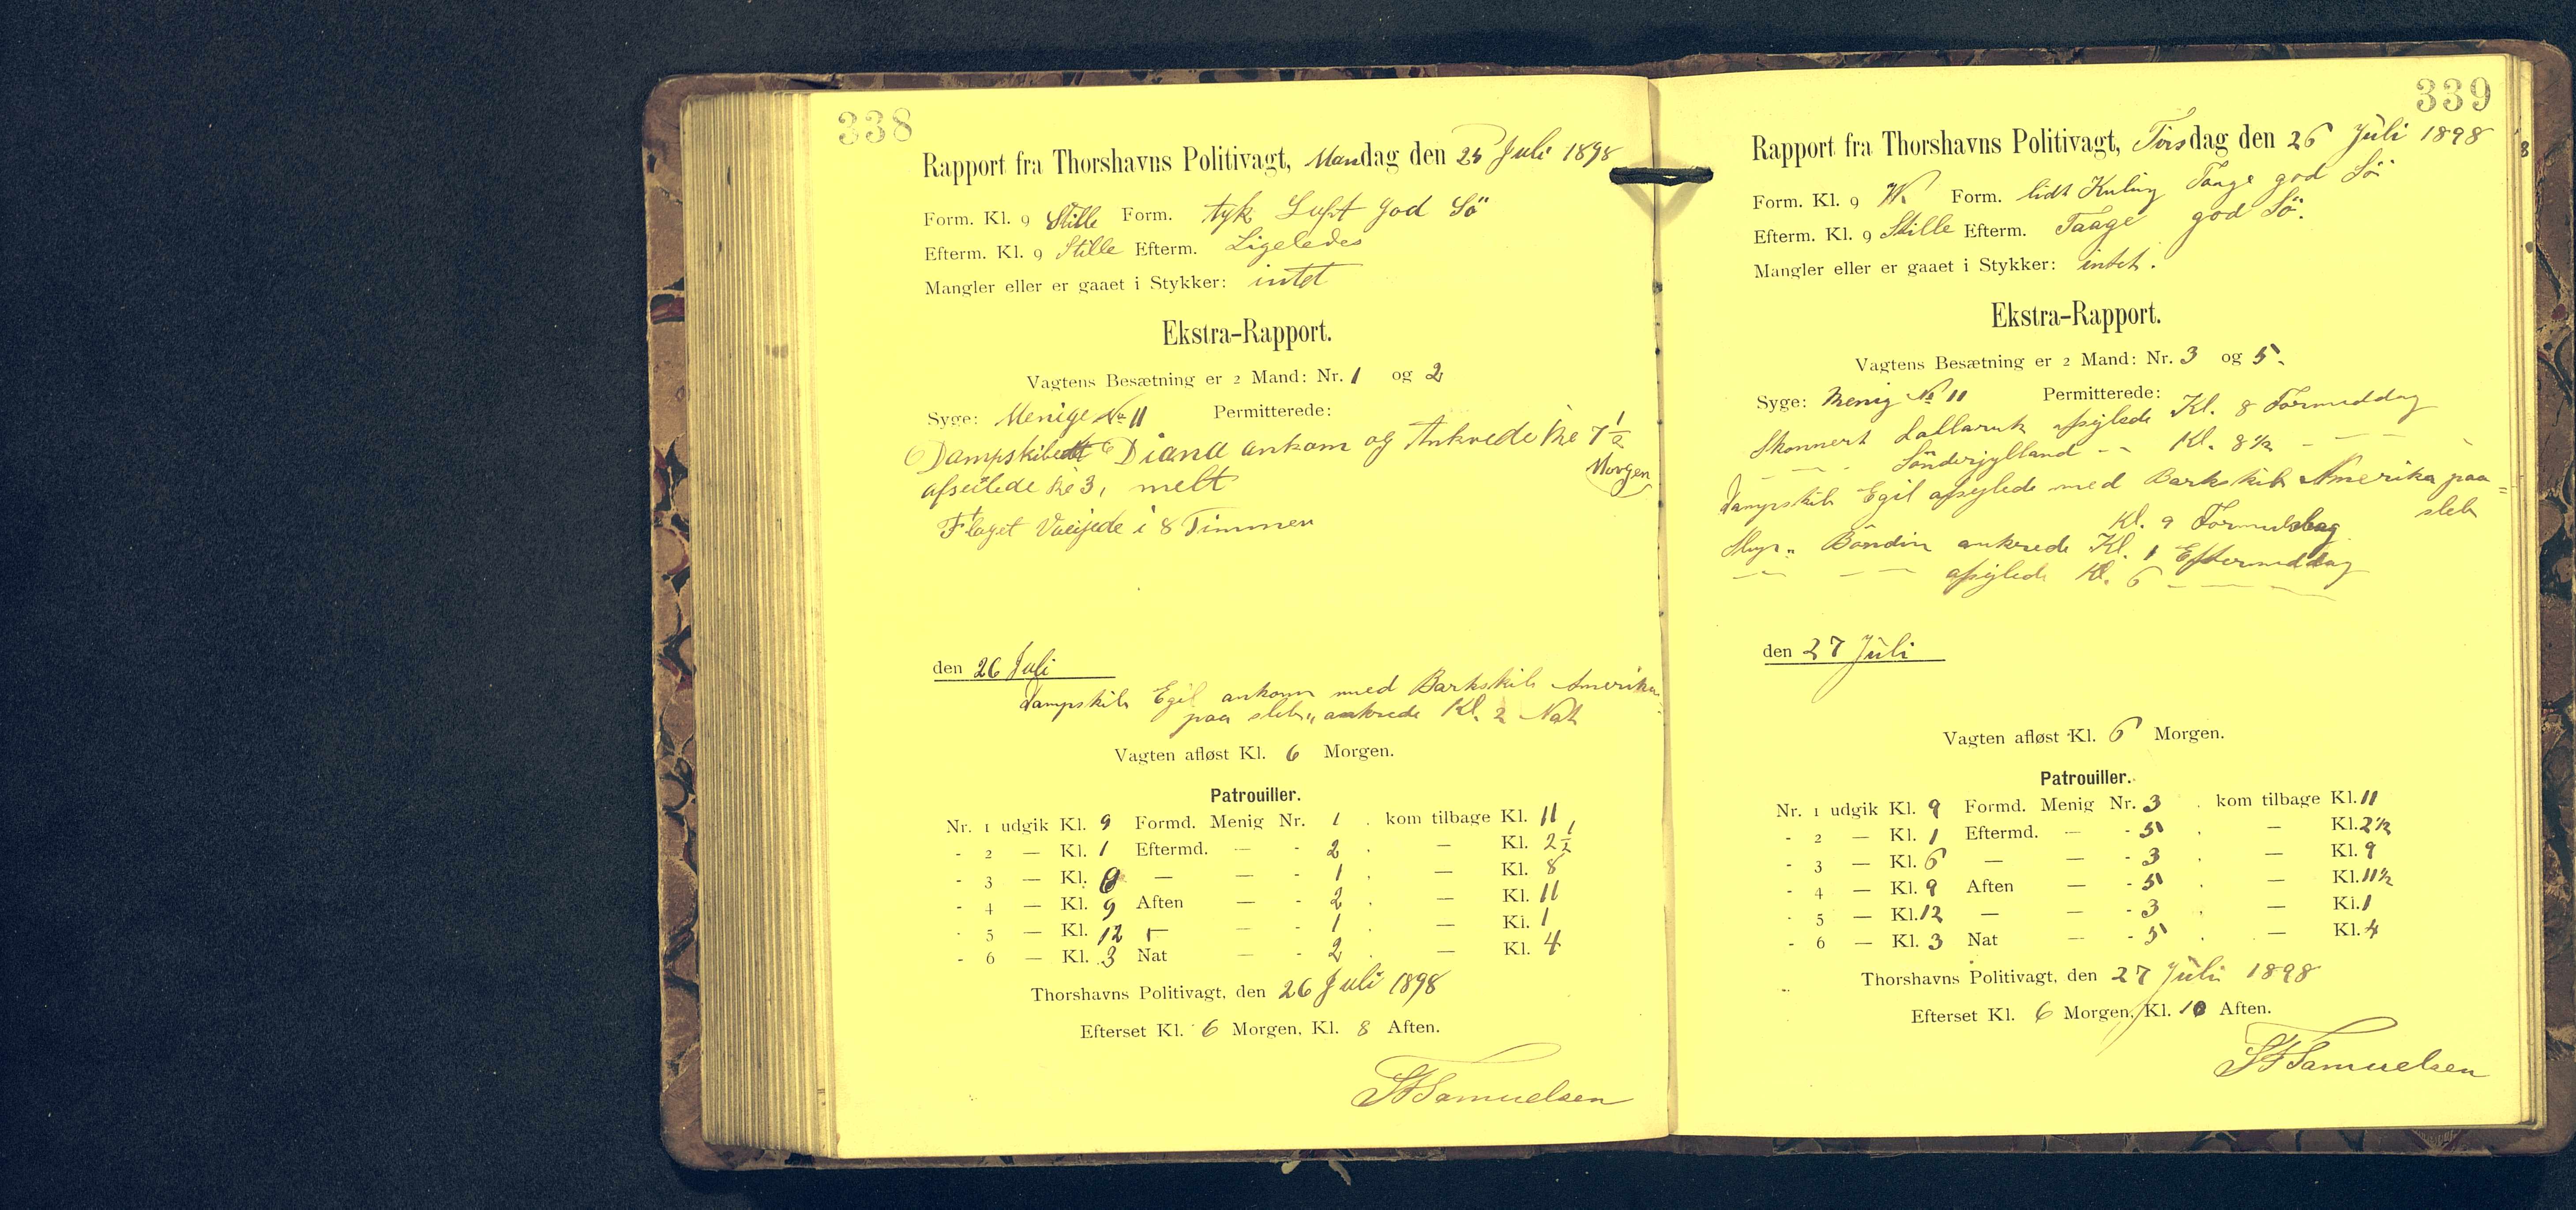 338
Rapport fra Thorshavns Politivagt, Mandag den 25 Juli 1898
Form. Kl. 9 Stille Form. tyk Luft god Sö
Efterm. Kl. 9 Stille Efterm. Ligeledes
Mangler eller er gaaet i Stykker: intet
Ekstra-Rapport.
Vagtens Besætning er 2 Mand: Nr. 1 og 2
Syge: Menige No 11 Permitterede:
Dampskibet Diana ankom og Ankrede Kl 7 1/2
Morgen
afseilede Kl 3, melt
Flaget Vaijede i 8 Timmer
den 26 Juli
Dampskib Egil ankom med Barkskib Amerika
paa sleb, ankrede Kl. 2 Nat
Vagten afløst Kl. 6 Morgen.
Patrouiller.
Nr. 1 udgik Kl. 9 Formd. Menig Nr. 1 . kom tilbage Kl. 11
- 2 — Kl. 1 Eftermd. — - 2 . — Kl. 2 1/2
- 3 — Kl. 6 — — - 1 . — Kl. 8
- 4 — Kl. 9 Aften — - 2 . — Kl. 11
- 5 — Kl. 12 — — - 1 . — Kl. 1
- 6 — Kl. 3 Nat — - 2 . — Kl. 4
Thorshavns Politivagt, den 26 Juli 1898
Efterset Kl. 6 Morgen, Kl. 8 Aften.
Samuelsen
339
Rapport fra Thorshavns Politivagt, Tirsdag den 26 Juli 1898
Form. Kl. 9 W. Form. lidt Kuling Taage god Sö
Efterm. Kl. 9 Stille Efterm. Taage god Sö.
Mangler eller er gaaet i Stykker: intet.
Ekstra-Rapport.
Vagtens Besætning er 2 Mand: Nr. 3 og 5.
Syge: Menig No 11 Permitterede:
Skonnert afsejlede Kl. 8 Formiddag
— Sönderjylland - - Kl. 8 1/2 - — —
Dampskib Egil afsejlede med Barkskib Amerika paa=
sleb
Kl. 9 Formiddag
Slup " Bondin ankrede Kl. 1 Eftermiddag
— — afsejlede Kl. 6 — — —
den 27 Juli
Vagten afløst Kl. 6 Morgen.
Patrouiller.
Nr. 1 udgik Kl. 9 Formd. Menig Nr. 3 . kom tilbage Kl. 11
- 2 — Kl. 1 Eftermd. — - 5 . — Kl. 2 1/2
- 3 — Kl. 6 — — - 3 . — Kl. 9
- 4 — Kl. 9 Aften — - 5 . — Kl. 11 1/2
- 5 — Kl. 12 — — - 3 . — Kl. 1
- 6 — Kl. 3 Nat — - 5 . — Kl. 4
Thorshavns Politivagt, den 27 Juli 1898
Efterset Kl. 6 Morgen, Kl. 10 Aften.
Samuelsen
8